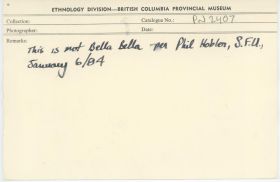 ETHNOLOGY DIVISION—BRITISH COLUMBIA PROVINCIAL MUSEUM
Collection: Catalogue No.: PN 2407
Photographer: Date:
Remarks:
This is not Bella Bella - per Phil Hobler, S.F.U.,
January 6/84